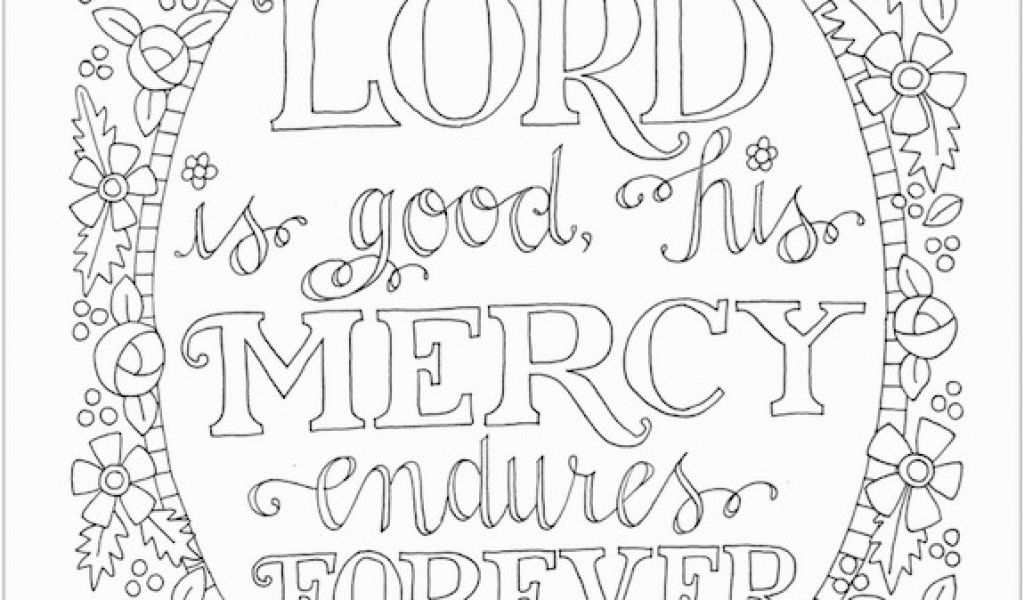 LORD
is good, his
MERCY
endures
FOREVER